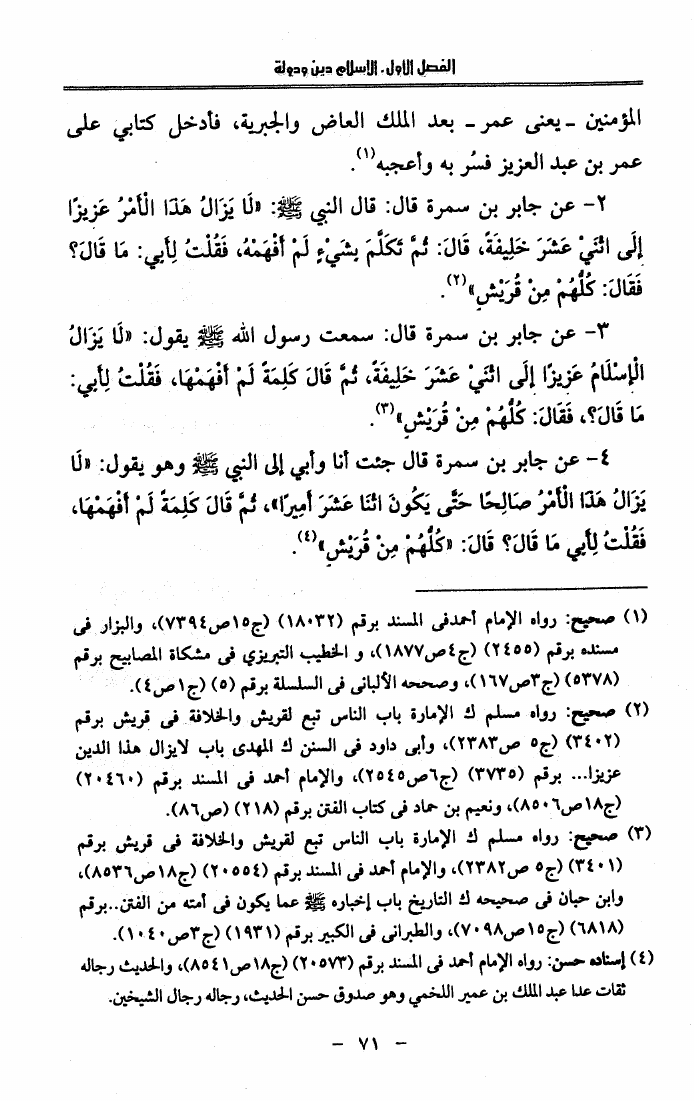 الفصل الأول. الإسلام دين ودولة
المؤمنين ـ يعنى عمر ـ بعد الملك العاض والجبرية، فأدخل كتابي على
عمر بن عبد العزيز فسُر به وأعجبه(١).
٢- عن جابر بن سمرة قال: قال النبي ﷺ: «لَا يَزَالُ هَذَا الْأَمْرُ عَزِيزًا
إِلَى اثْنَيْ عَشَرَ خَلِيفَةً، قَالَ: ثُمَّ تَكَلَّمَ بِشَيْءٍ لَمْ أَفْهَمْهُ، فَقُلْتُ لِأَبِي: مَا قَالَ؟
فَقَالَ: كُلُّهُمْ مِنْ قُرَيْشٍ»(٢).
٣- عن جابر بن سمرة قال: سمعت رسول الله ﷺ يقول: «لَا يَزَالُ
الْإِسْلَامُ عَزِيزًا إِلَى اثْنَيْ عَشَرَ خَلِيفَةً، ثُمَّ قَالَ كَلِمَةً لَمْ أَفْهَمْهَا، فَقُلْتُ لِأَبِي:
مَا قَالَ؟، فَقَالَ: كُلُّهُمْ مِنْ قُرَيْشٍ»(٣).
٤- عن جابر بن سمرة قال جئت أنا وأبي إلى النبي ﷺ وهو يقول: «لَا
يَزَالُ هَذَا الْأَمْرُ صَالِحًا حَتَّى يَكُونَ اثْنَا عَشَرَ أَمِيرًا»، ثُمَّ قَالَ كَلِمَةً لَمْ أَفْهَمْهَا،
فَقُلْتُ لِأَبِي مَا قَالَ؟ قَالَ: «كُلُّهُمْ مِنْ قُرَيْشٍ»(٤).
(١) صحيح: رواه الإمام أحمدفى المسند برقم (١٨٠٣٢) (ج١٥ص٧٣٩٤)، والبزار فى
مسنده برقم (٢٤٥٥) (ج٤ص١٨٧٧)، و الخطيب التبريزي فى مشكاة المصابيح برقم
(٥٣٧٨) (ج٣ص١٦٧)، وصححه الألبانى فى السلسلة برقم (٥) (ج١ص٤).
(٢) صحيح: رواه مسلم ك الإمارة باب الناس تبع لقريش والخلافة فى قريش برقم
(٣٤٠٢) (ج٥ ص٢٣٨٣)، وأبى داود فى السنن ك المهدى باب لايزال هذا الدين
عزيزا... برقم (٣٧٣٥) (ج٦ص٢٥٤٥)، والإمام أحمد فى المسند برقم (٢٠٤٦٠)
(ج١٨ص٨٥٠٦)، ونعيم بن حماد فى كتاب الفتن برقم (٢١٨) (ص٨٦).
(٣) صحيح: رواه مسلم ك الإمارة باب الناس تبع لقريش والخلافة فى قريش برقم
(٣٤٠١) (ج٥ ص٢٣٨٢)، والإمام أحمد فى المسند برقم (٢٠٥٥٤) (ج١٨ص٨٥٣٦)،
وابن حبان فى صحيحه ك التاريخ باب إخباره ﷺ عما يكون فى أمته من الفتن..برقم
(٦٨١٨) (ج١٥ص٧٠٩٨)، والطبرانى فى الكبير برقم (١٩٣١) (ج٣ص١٠٤٠).
(٤) إسناده حسن: رواه الإمام أحمد فى المسند برقم (٢٠٥٧٣) (ج١٨ص٨٥٤١)، والحديث رجاله
ثقات عدا عبد الملك بن عمير اللخمي وهو صدوق حسن الحديث، رجاله رجال الشيخين.
- ٧١ -